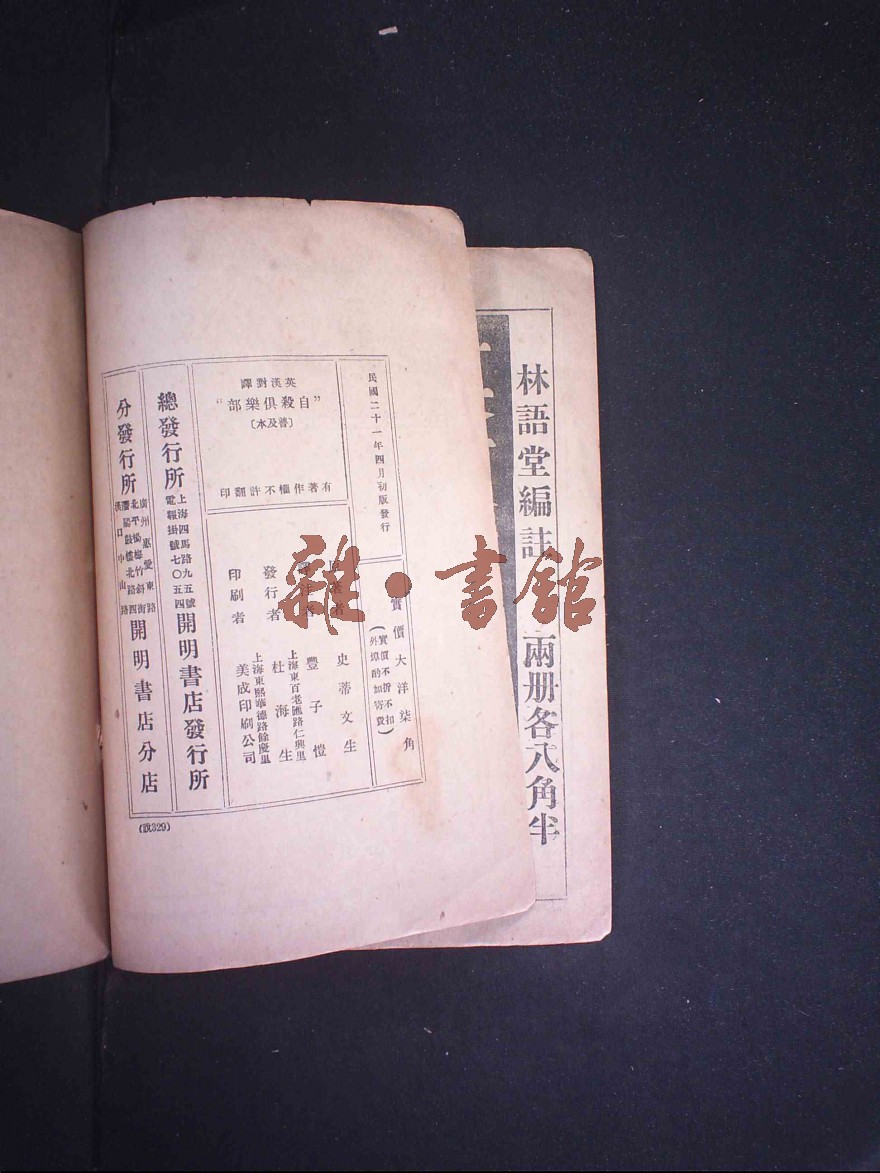 民國二十一年四月初版發行
實價大洋柒角
(實價不折不扣
外埠酌加寄費)
英漢對譯
“自殺俱樂部”
[普及本]
有著作權不許翻印
史蒂文生
豐子愷
發行者 杜海生
上海東百老匯路仁興里
印刷者 美成印刷公司
上海東熙華德路餘慶里
總發行所
上海四馬路九五號
電報掛號七〇五四
開明書店發行所
分發行所
廣州惠愛東路
北平楊梅竹斜街
漢口中山路
開明書店分店
(說329)
林語堂編註
兩册各八角半
雜·書館